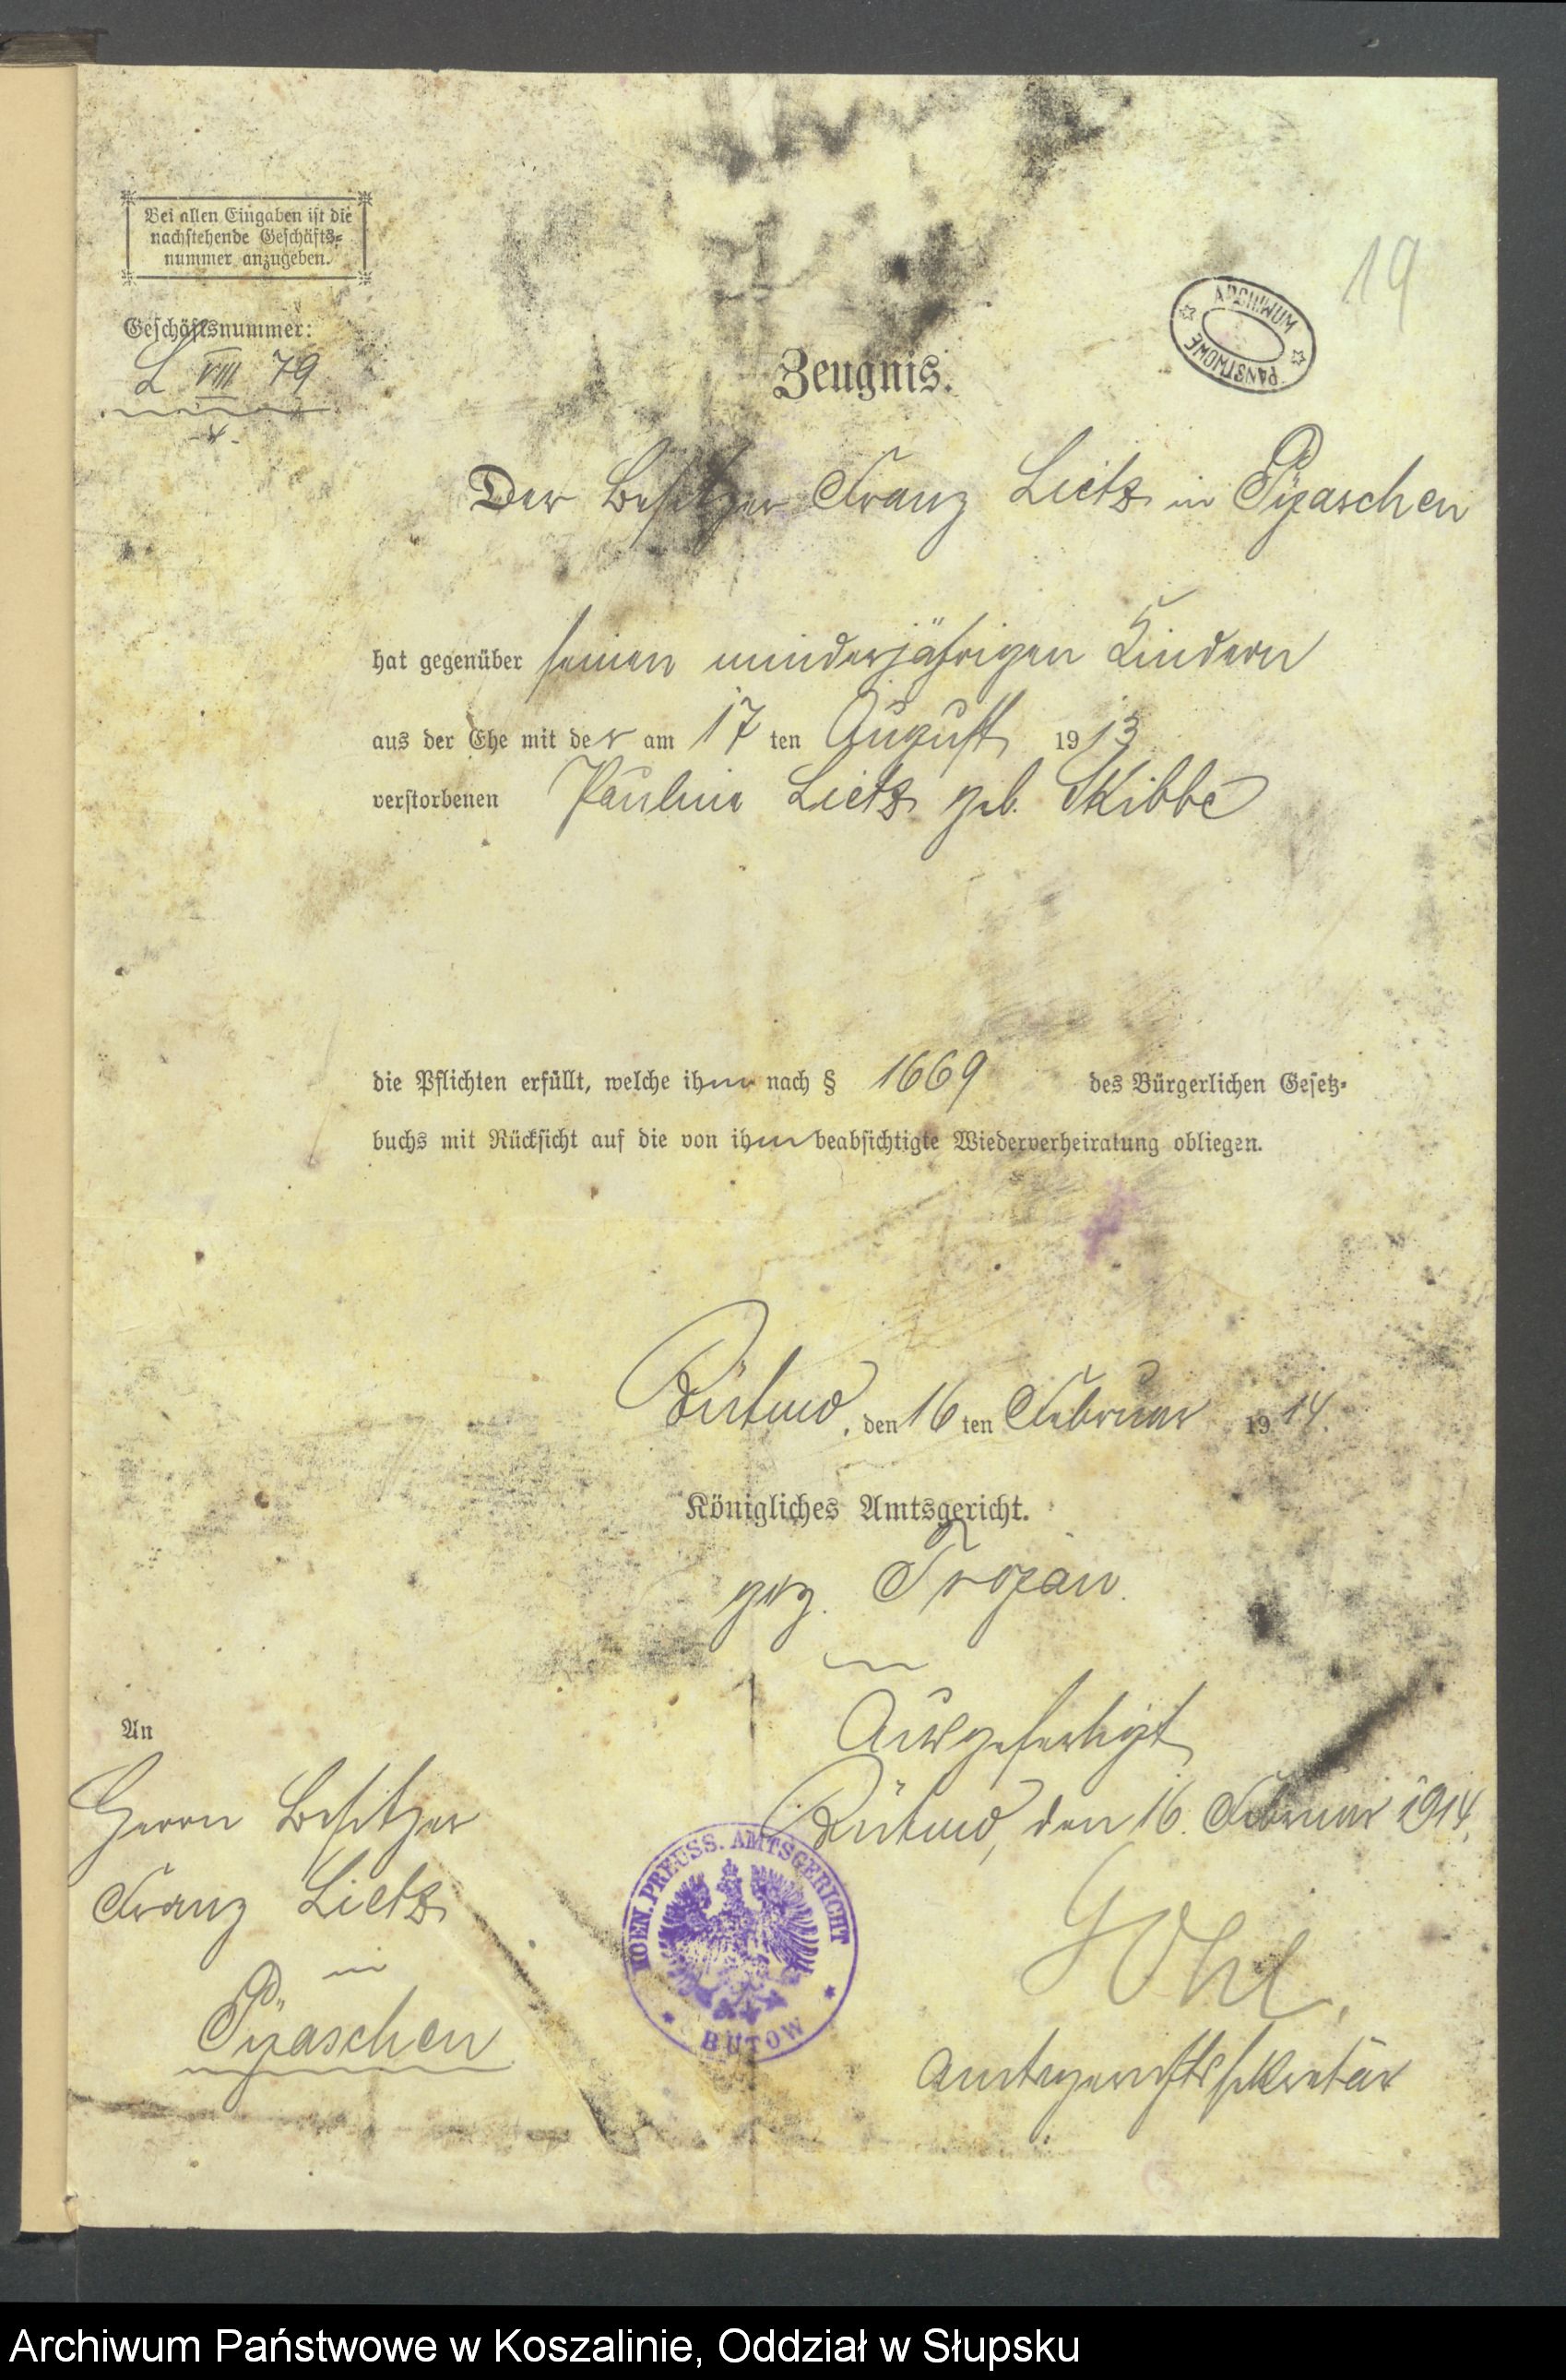 Bei allen Eingaben ist die
nachstehende Geschäfts-
nummer anzugeben.
Geschäftsnummer:
L VIII 79
4.
19
ARCHIWUM PAŃSTWOWE
Zeugnis.
Der Besitzer Franz Lietz in Pyaschen
hat gegenüber seinen minderjährigen Kindern
aus der Ehe mit der am 17 ten August 1913
verstorbenen Pauline Lietz geb. Skibbe
die Pflichten erfüllt, welche ihm nach § 1669 des Bürgerlichen Gesetz-
buchs mit Rücksicht auf die von ihm beabsichtigte Wiederverheiratung obliegen.
Bütow, den 16 ten Februar 1914.
Königliches Amtsgericht.
gez. Trojan.
Ausgefertigt
Bütow, den 16. Februar 1914.
An
Herrn Besitzer
Franz Lietz
in
Pyaschen
KOEN. PREUSS. AMTSGERICHT
BÜTOW
Amtsgerichtssekretär
Archiwum Państwowe w Koszalinie, Oddział w Słupsku